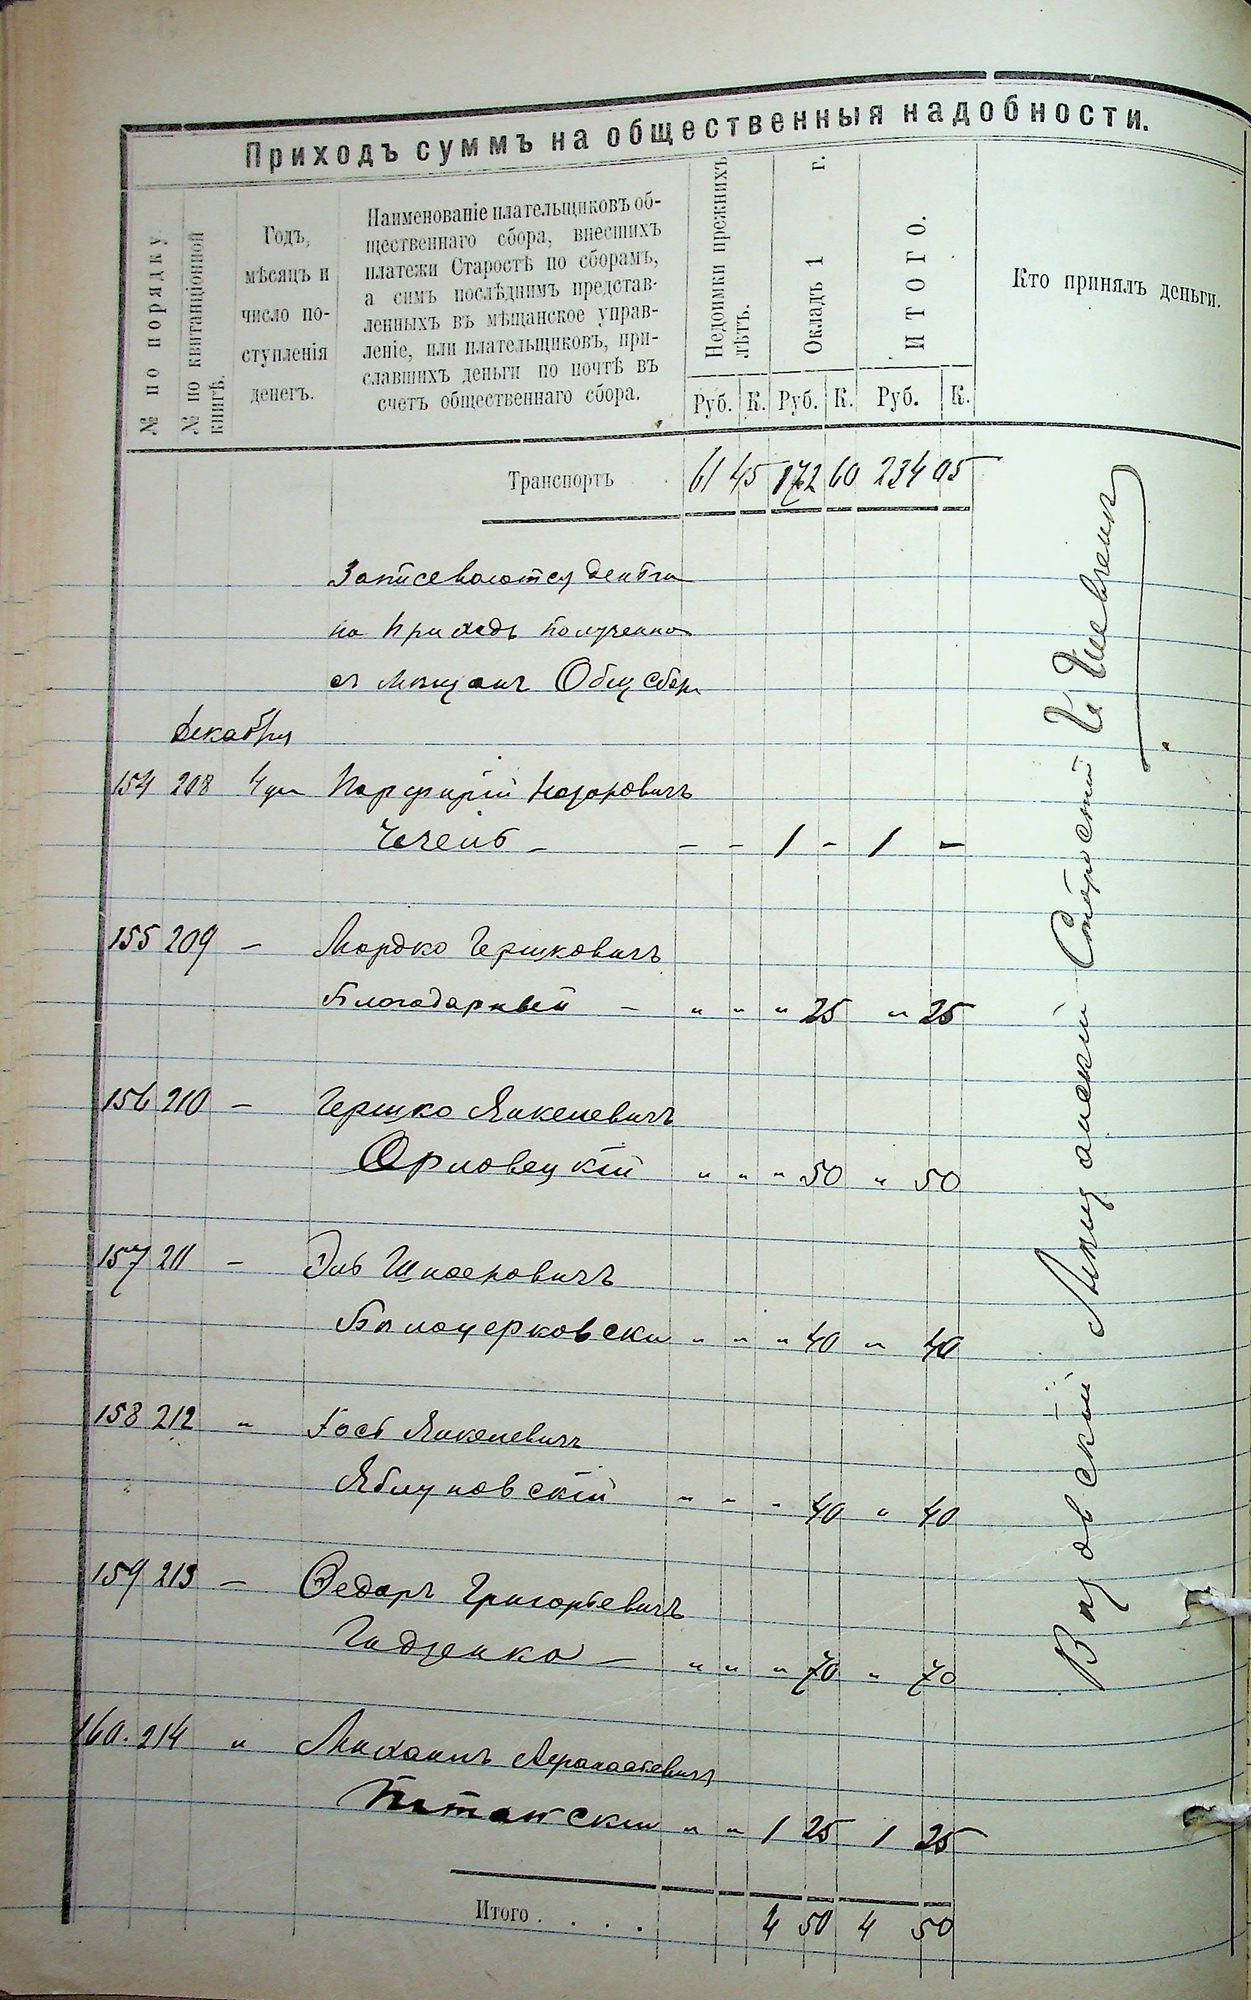 Приходъ суммъ на общественныя надобности.
№ по порядку
№ по квитанціонной
книгѣ.
Годъ,
мѣсяцъ и
число по-
ступленія
денегъ.
Наименованіе плательщиковъ об-
щественнаго сбора, внесшихъ
платежи Старостѣ по сборамъ,
а симъ послѣднимъ представ-
ленныхъ въ мѣщанское управ-
леніе, или плательщиковъ, при-
славшихъ деньги по почтѣ въ
счетъ общественнаго сбора.
Недоимки прежнихъ
лѣтъ.
Окладъ 1 г.
ИТОГО.
Кто принялъ деньги.
Руб. К. Руб. К. Руб. К.
Транспортъ 61 45 172 60 234 05
на приходъ
съ мѣщанъ Общ сбор
Декабря
154 208 4 Порфирій Назаровичъ
- - 1 - 1 -
155 209 - Мордко Гершковичъ
Благодарный - " " " 25 " 25
156 210 - Гершко Янкелевичъ
Орловецкій " " " 50 " 50
157 211 -
" " " 40 " 40
158 212 " Янкелевичъ
Яблуновскій " " " 40 " 40
159 213 - Федоръ Григорьевичъ
" " " 70 " 70
160. 214 " Михаилъ Афанасьевичъ
" " 1 25 1 25
Итого . . . . 4 50 4 50
Мѣщанскій Староста